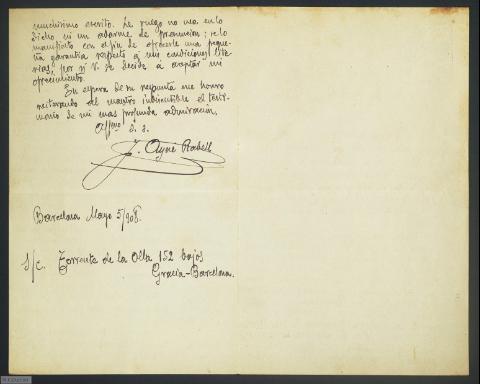 muchísimo escrito. Le ruego no vea en lo
dicho ni un adarme de presunción; se lo
manifiesto con el fin de ofrecerle una peque-
ña garantía respecto á mis condiciones lite-
rarias, por si V. se decide á aceptar mi
ofrecimiento.
En espera de su respuesta me honro
reiterando al maestro indiscutible el testi-
monio de mi mas profunda admiración.
Affmo. s. s.
J. Aymé Rabell
Barcelona Mayo 5/908.
S/c. Torrente de la Olla 152 bajos
Gracia-Barcelona.